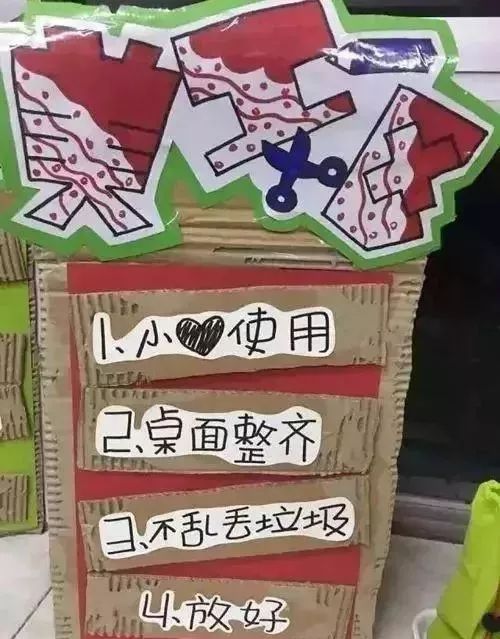 美工区
1、小♥使用
2、桌面整齐
3、不乱丢垃圾
4、放好